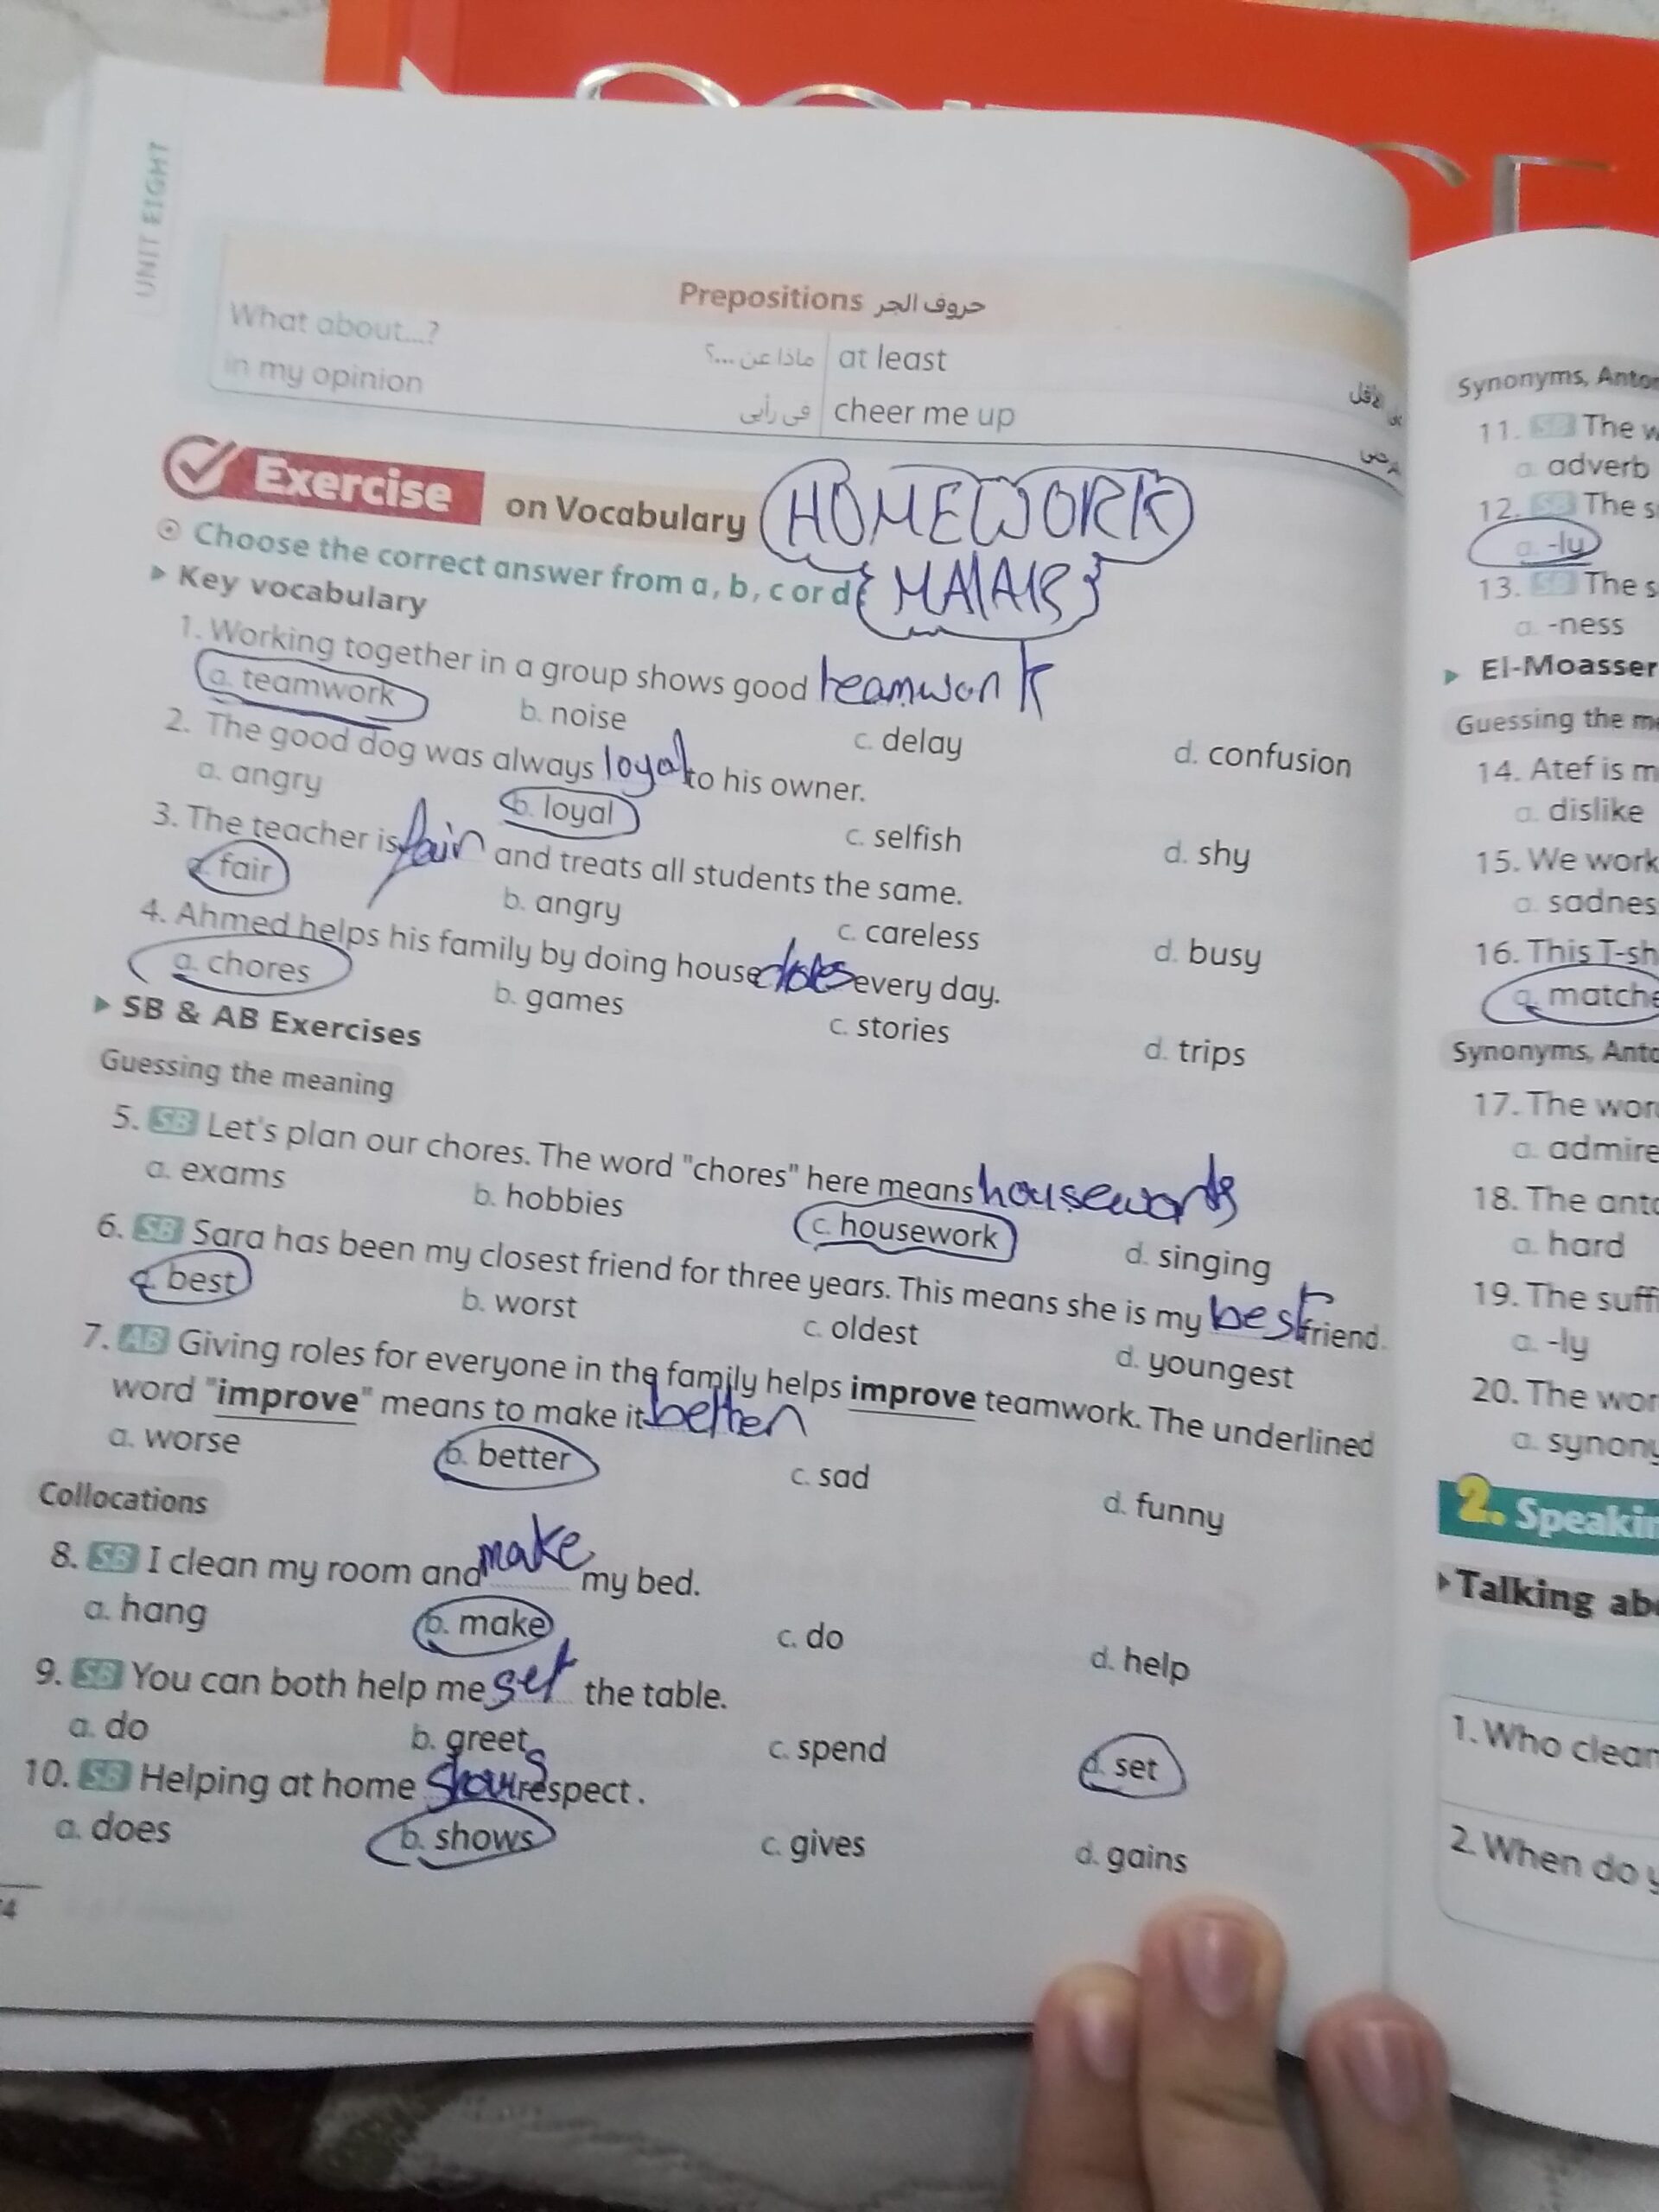 UNIT EIGHT
Prepositions حروف الجر
What about...? ماذا عن ...؟ at least
in my opinion فى رأيى cheer me up
Exercise on Vocabulary HOMEWORK
Choose the correct answer from a, b, c or d:
Key vocabulary
1. Working together in a group shows good teamwork
a. teamwork b. noise c. delay d. confusion
2. The good dog was always loyal to his owner.
a. angry b. loyal c. selfish d. shy
3. The teacher is fair and treats all students the same.
a. fair b. angry c. careless d. busy
4. Ahmed helps his family by doing house every day.
a. chores b. games c. stories d. trips
SB & AB Exercises
Guessing the meaning
5. SB Let's plan our chores. The word "chores" here means houseworks
a. exams b. hobbies c. housework d. singing
6. SB Sara has been my closest friend for three years. This means she is my best friend.
a. best b. worst c. oldest d. youngest
7. AB Giving roles for everyone in the family helps improve teamwork. The underlined
word "improve" means to make it better
a. worse b. better c. sad d. funny
Collocations
8. SB I clean my room and make my bed.
a. hang b. make c. do d. help
9. SB You can both help me set the table.
a. do b. greet c. spend d. set
10. SB Helping at home shows respect.
a. does b. shows c. gives d. gains
Synonyms,
11. SB The
a. adverb
12. SB The
a. -ly
13. SB The
a. -ness
El-Moasser
Guessing the
14. Atef is
a. dislike
15. We work
a.
16. This
a.
Synonyms,
17. The
a. admire
18. The
a. hard
19. The
a. -ly
20. The
a.
2.
Talking
1. Who
2. When do